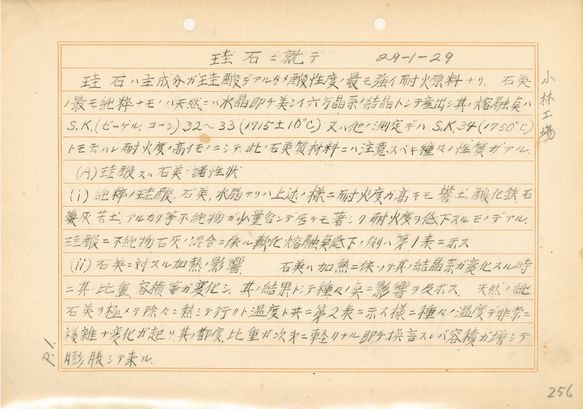 珪石ニ就テ 29-1-29
珪石ハ主成分ガ珪酸デアルカラ酸性度ノ最モ強イ耐火原料ナリ. 石英
ノ最モ純粋ナモノハ天然ニハ水晶即チ美シイ六方晶系ノ結晶トシテ産出シ其ノ熔融点ハ
S.K.(ゼーゲルコーン) 32~33 (1715±10°C) 又ハ他ノ測定デハ S.K.34 (1750°C)
トモ云ハレ耐火度ノ高イモノニシテ、此ノ石英質材料ニハ注意スベキ種々ノ性質ガアル.
(A) 珪酸又ハ石英ノ諸性状
(i) 純粋ノ珪酸、石英、水晶ナリハ上述ノ様ニ耐火度ガ高キモ礬土、酸化鉄、石
灰、苦土、アルカリ等不純物ガ少量含シテ居テモ著シク耐火度ヲ低下スルモノデアル.
珪酸ニ不純物石灰ノ混合ニ依ル軟化熔融点低下ノ例ハ第1表ニ示ス
(ii) 石英ニ対スル加熱ノ影響. 石英ハ加熱ニ依ツテ其ノ結晶系ガ変化スル時
ニ其ノ比重、容積等ガ変化シ、其ノ結果トシテ種々ノ点ニ影響ヲ及ボス. 天然ノ純
石英ヲ極メテ徐々ニ熱シテ行クト温度ト共ニ第2表ニ示ス様ニ種々ノ温度デ非常ニ
複雑ナ変化ガ起リ、其ノ都度、比重ガ次第ニ軽クナル即チ換言スレバ容積ガ増シテ
膨脹シテ来ル.
小林工場
P.1.
256